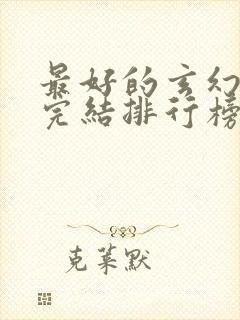 最好的玄幻
完結排行榜
克萊默